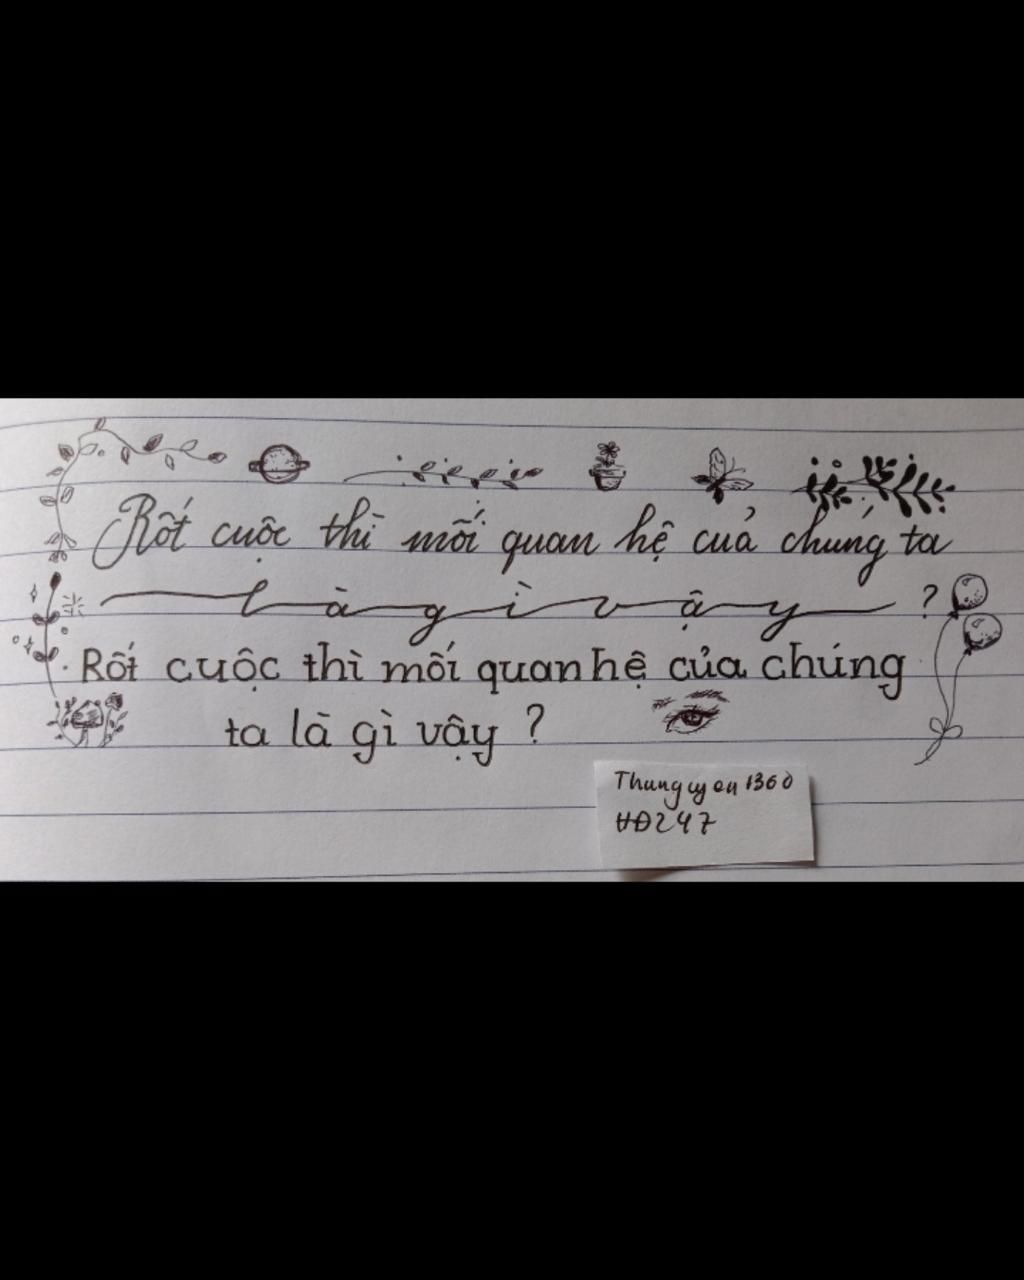 Rốt cuộc thì mối quan hệ của chúng ta
là gì vậy ?
Rốt cuộc thì mối quan hệ của chúng
ta là gì vậy ?
Thunguyen1360
HĐ247